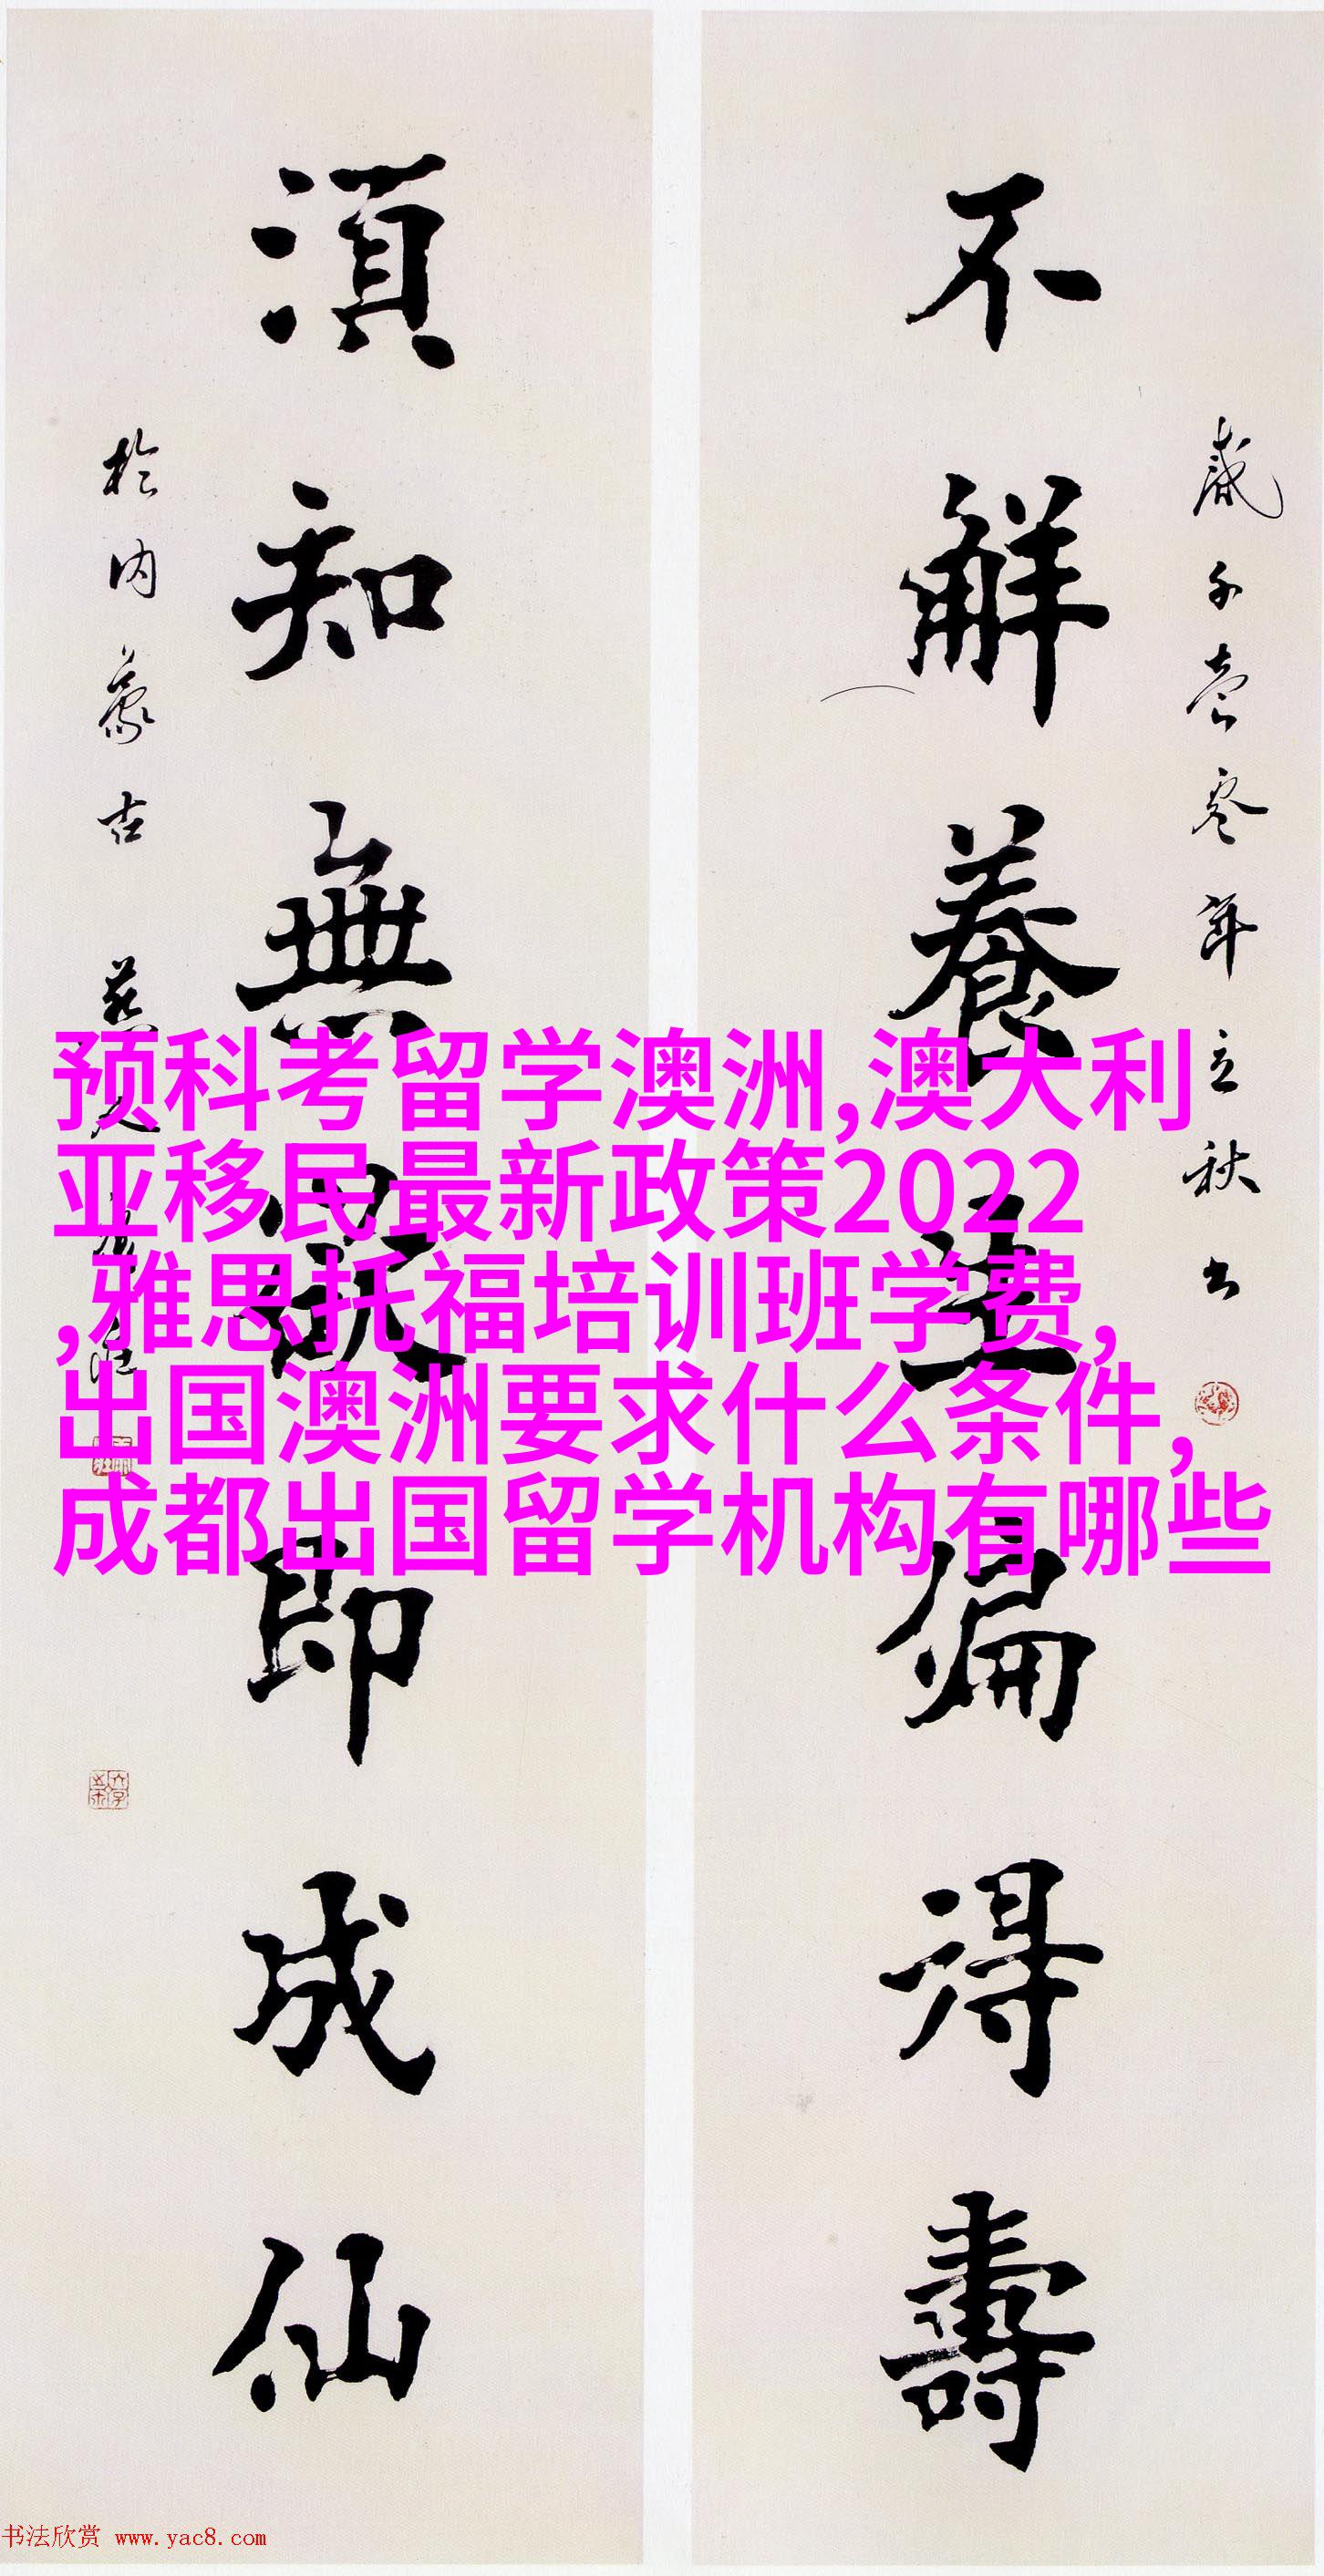 不解养生偏得壽
須知無
即成仙
歲
零年立秋
於内蒙古
预科考留学澳洲,澳大利
亚移民最新政策2022
,雅思托福培训班学费,
出国澳洲要求什么条件,
成都出国留学机构有哪些
书法欣赏 www.yac8.com